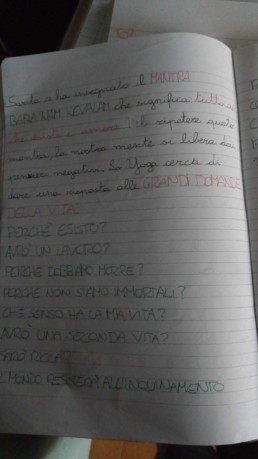 ci ha insegnato il MANTRA
BABA NAM KEVALAM che significa tutto ciò
che esiste è amore. Nel ripetere questo
mantra, la nostra mente si libera dai
pensieri negativi. Lo Yoga cerca di
dare una risposta alle GRANDI DOMANDE
DELLA VITA:
PERCHÉ ESISTO?
AVRÒ UN LAVORO?
PERCHÉ DOBBIAMO MORIRE?
PERCHÉ NON SIAMO IMMORTALI?
CHE SENSO HA LA MIA VITA?
AVRÒ UNA SECONDA VITA?
SARÒ RICCA?
IL MONDO RESISTERÀ ALL'INQUINAMENTO